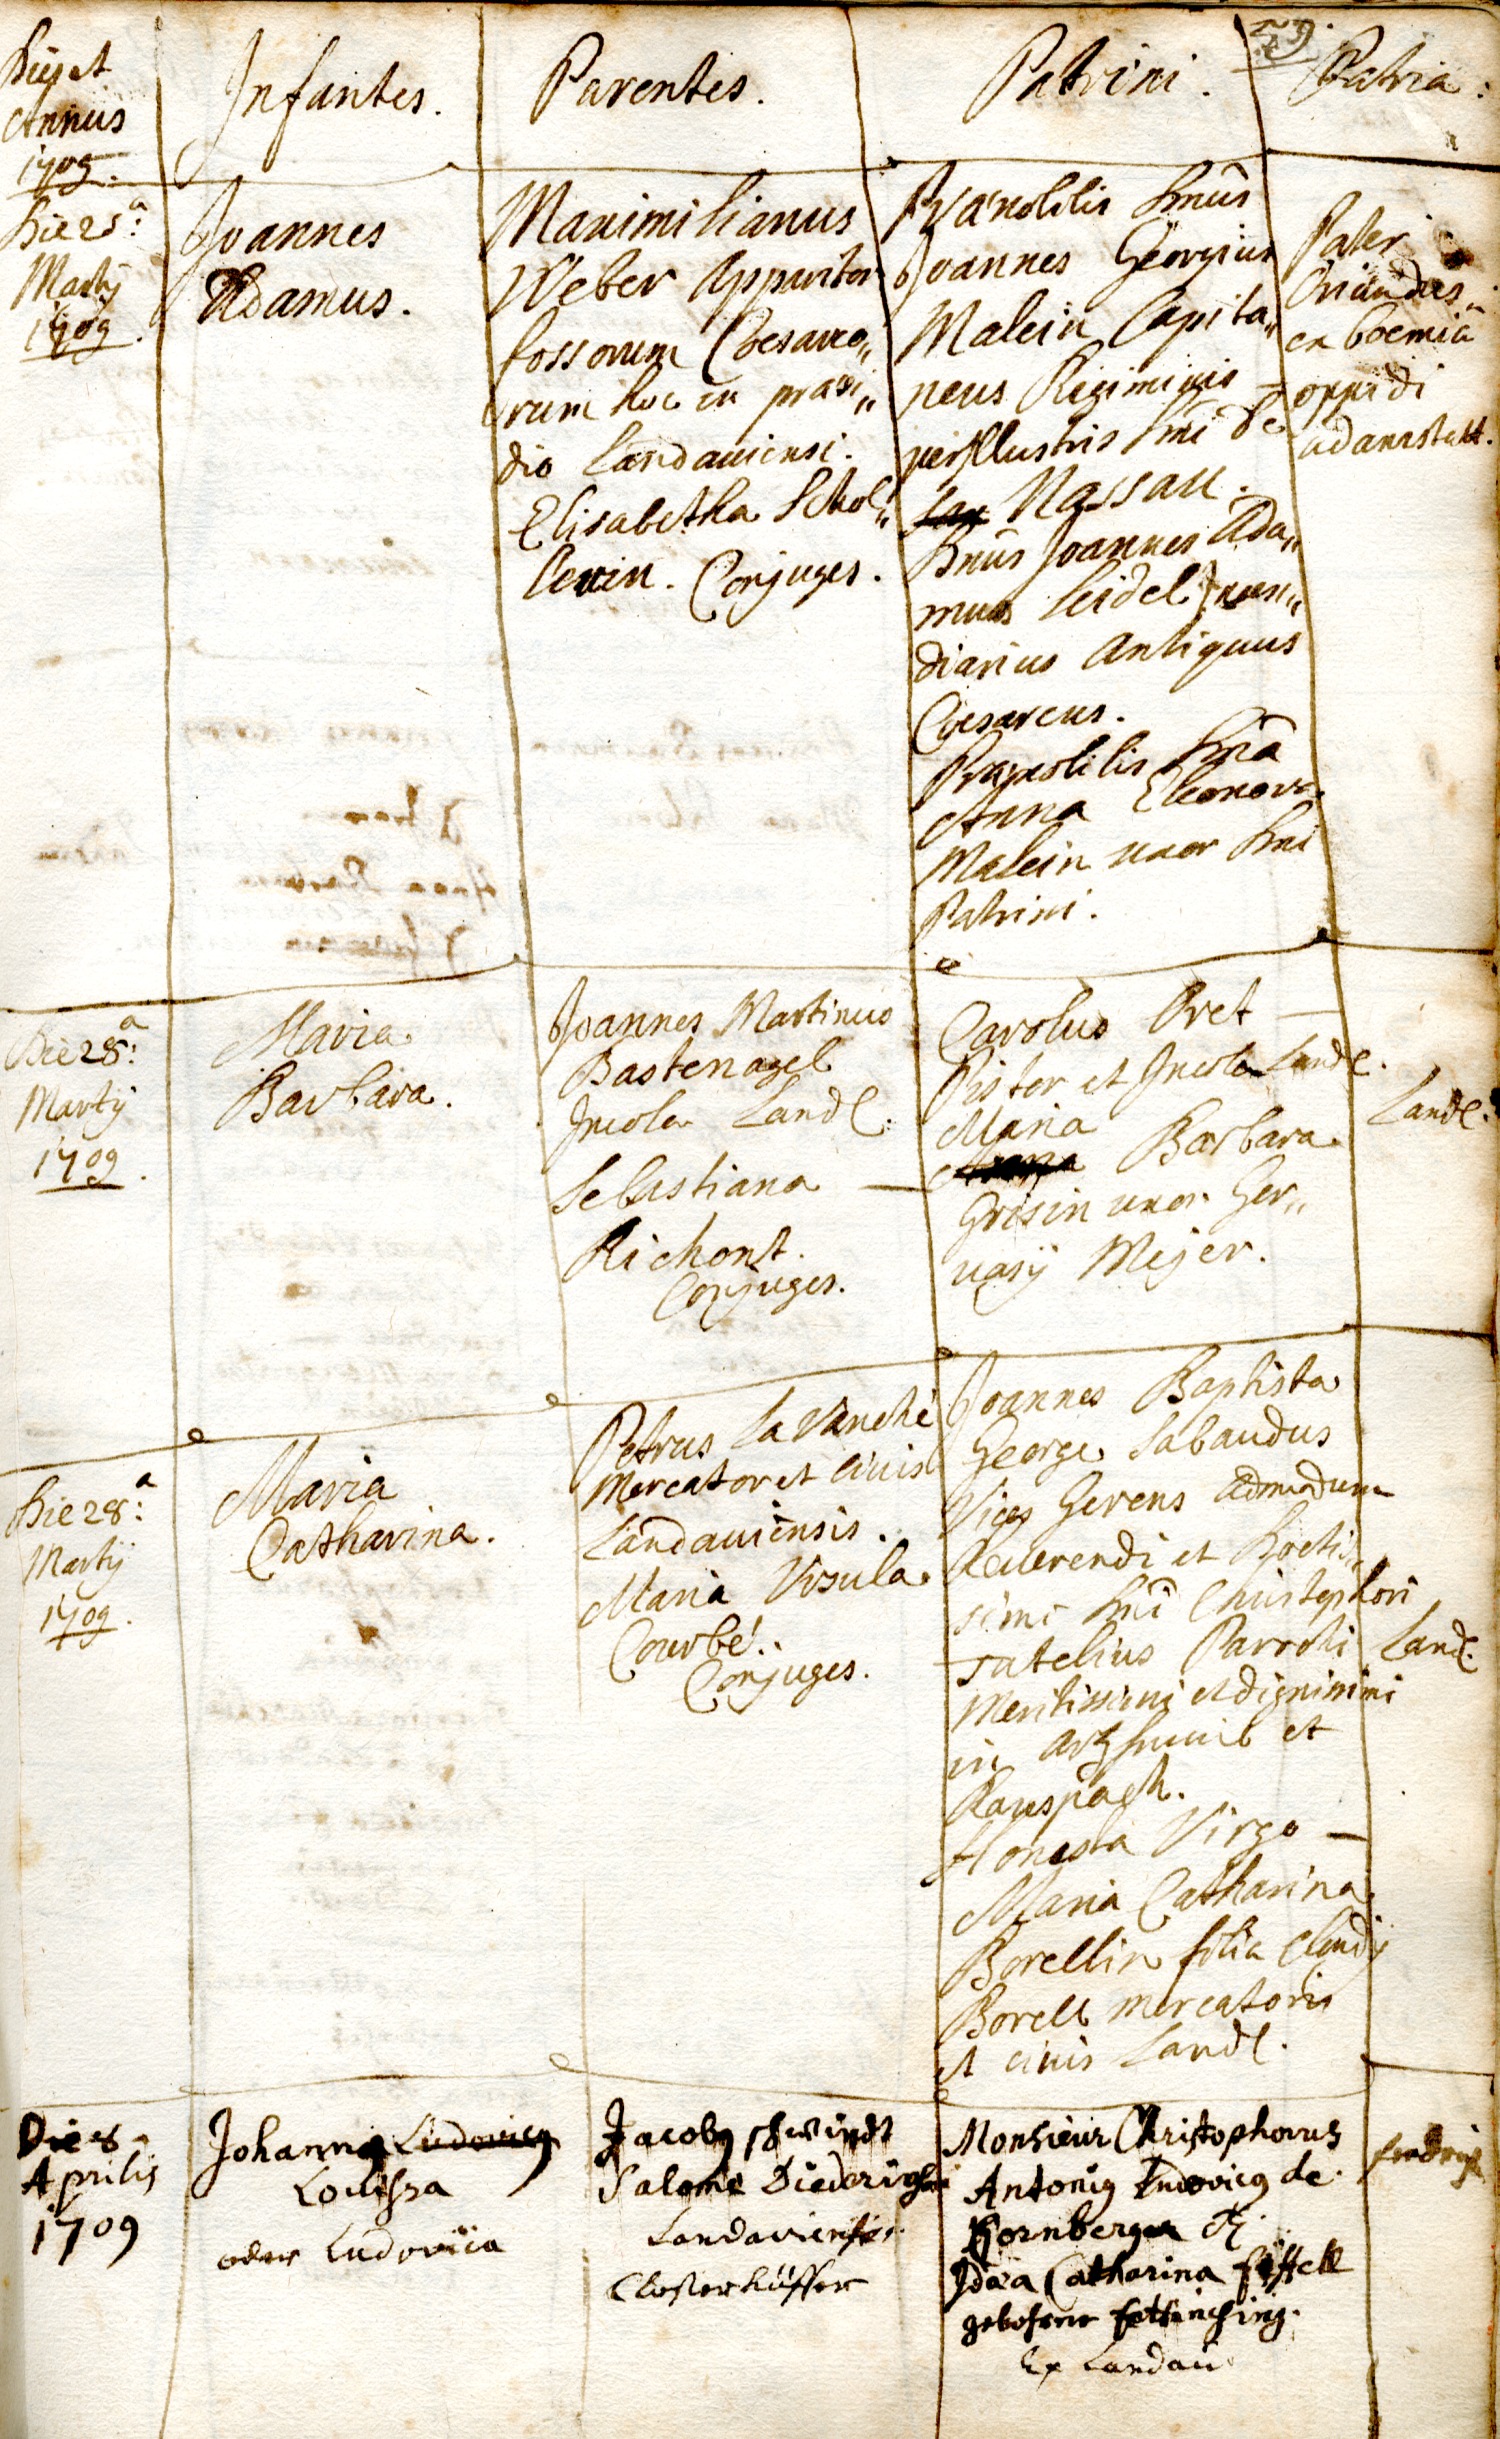 29.
Dies et
Annus
1709.
Infantes.
Parentes.
Patrini.
Patria:
Die 25ª:
Martij
1709.
Joannes
Adamus.
Maximilianus
Weber Apparitor
fossorum Cæsareo„
rum hoc in præsi„
dio Landauiensi.
Elisabetha Schol„
lerin. Conjuges.
Prænobilis Dnūs
Joannes Georgius
Malein Capita„
neus Regiminis
perillustris Dni de
Nassau.
Dnūs Joannes Ada„
mus Seidel
diarius Antiquus
Cæsareus.
Prænobilis Dnā
Anna Eleonora
Malein uxor Dni
Patrini.
Pater
Oriundus
ex boemiâ
oppidi
adamstatt.
Die 28ª:
Martij
1709.
Maria
Barbara.
Joannes Martinus
Bastenagel
Incola Land:
Sebastiana —
Richont.
Conjuges.
Carolus Pret —
Pistor et Incola Land:
Maria
Barbara
Grisin uxor Ger„
uasij Mejer.
Land:
Die 28ª:
Martij
1709.
Maria
Catharina.
Petrus La Vanché
Mercator et Ciuis
Landauiensis.
Maria Vrsula
Courbé.
Conjuges.
Joannes Baptista
George Sabaudus
Vices Gerens Admodum
Reuerendi et Doctis„
simi Dni Christophori
Tatelius Parochi
Meritissimi et dignissimi
in et
Ranspach.
Honesta Virgo —
Maria Catharina
Borellin filia Claudij
Borell mercatoris
et ciuis Land:
Land:
Die 8
Aprilis
1709
Johanna Ludovica
Louissa
oder Ludovica
Jacobus Schwindt
Salome
Landaviensis
Closterküffer
Monsieur Christophorus
Antonius Ludovicus de
Hornberger &
Catharina
gebohrne
Ex Landau